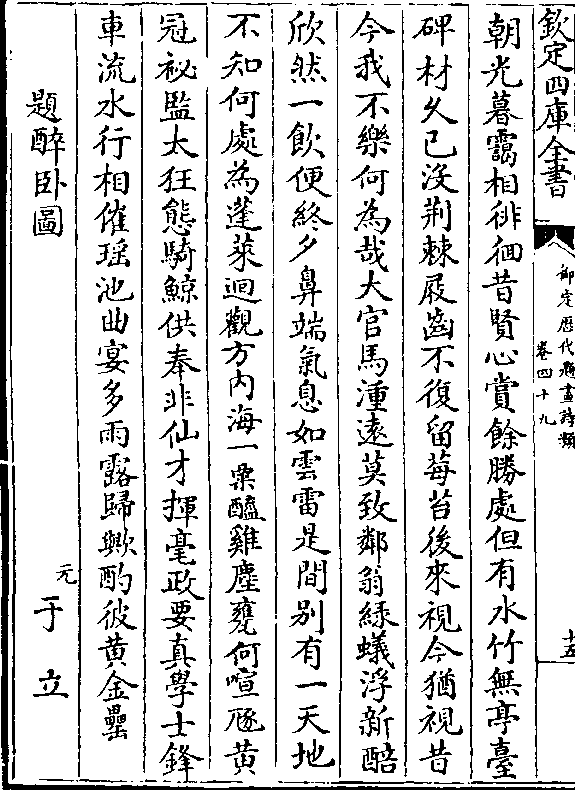 欽定四庫全書
御定歷代題畫詩類
卷四十九
十五
朝光暮靄相徘徊昔賢心賞餘勝處但有水竹無亭臺
碑材久已沒荆棘屐齒不復留莓苔後來視今猶視昔
今我不樂何為哉大官馬湩遠莫致鄰翁緑蟻浮新醅
欣然一飲便終夕鼻端氣息如雲雷是間别有一天地
不知何處為蓬萊迴觀方内海一粟醯雞塵甕何喧豗黄
冠祕監太狂態騎鯨供奉非仙才揮毫政要真學士鋒
車流水行相催瑶池曲宴多雨露歸歟酌彼黄金罍
題醉卧圖
元 于立